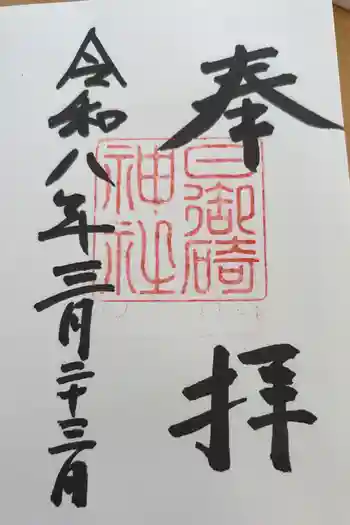 奉拝
日御碕
神社
令和八年三月二十三月